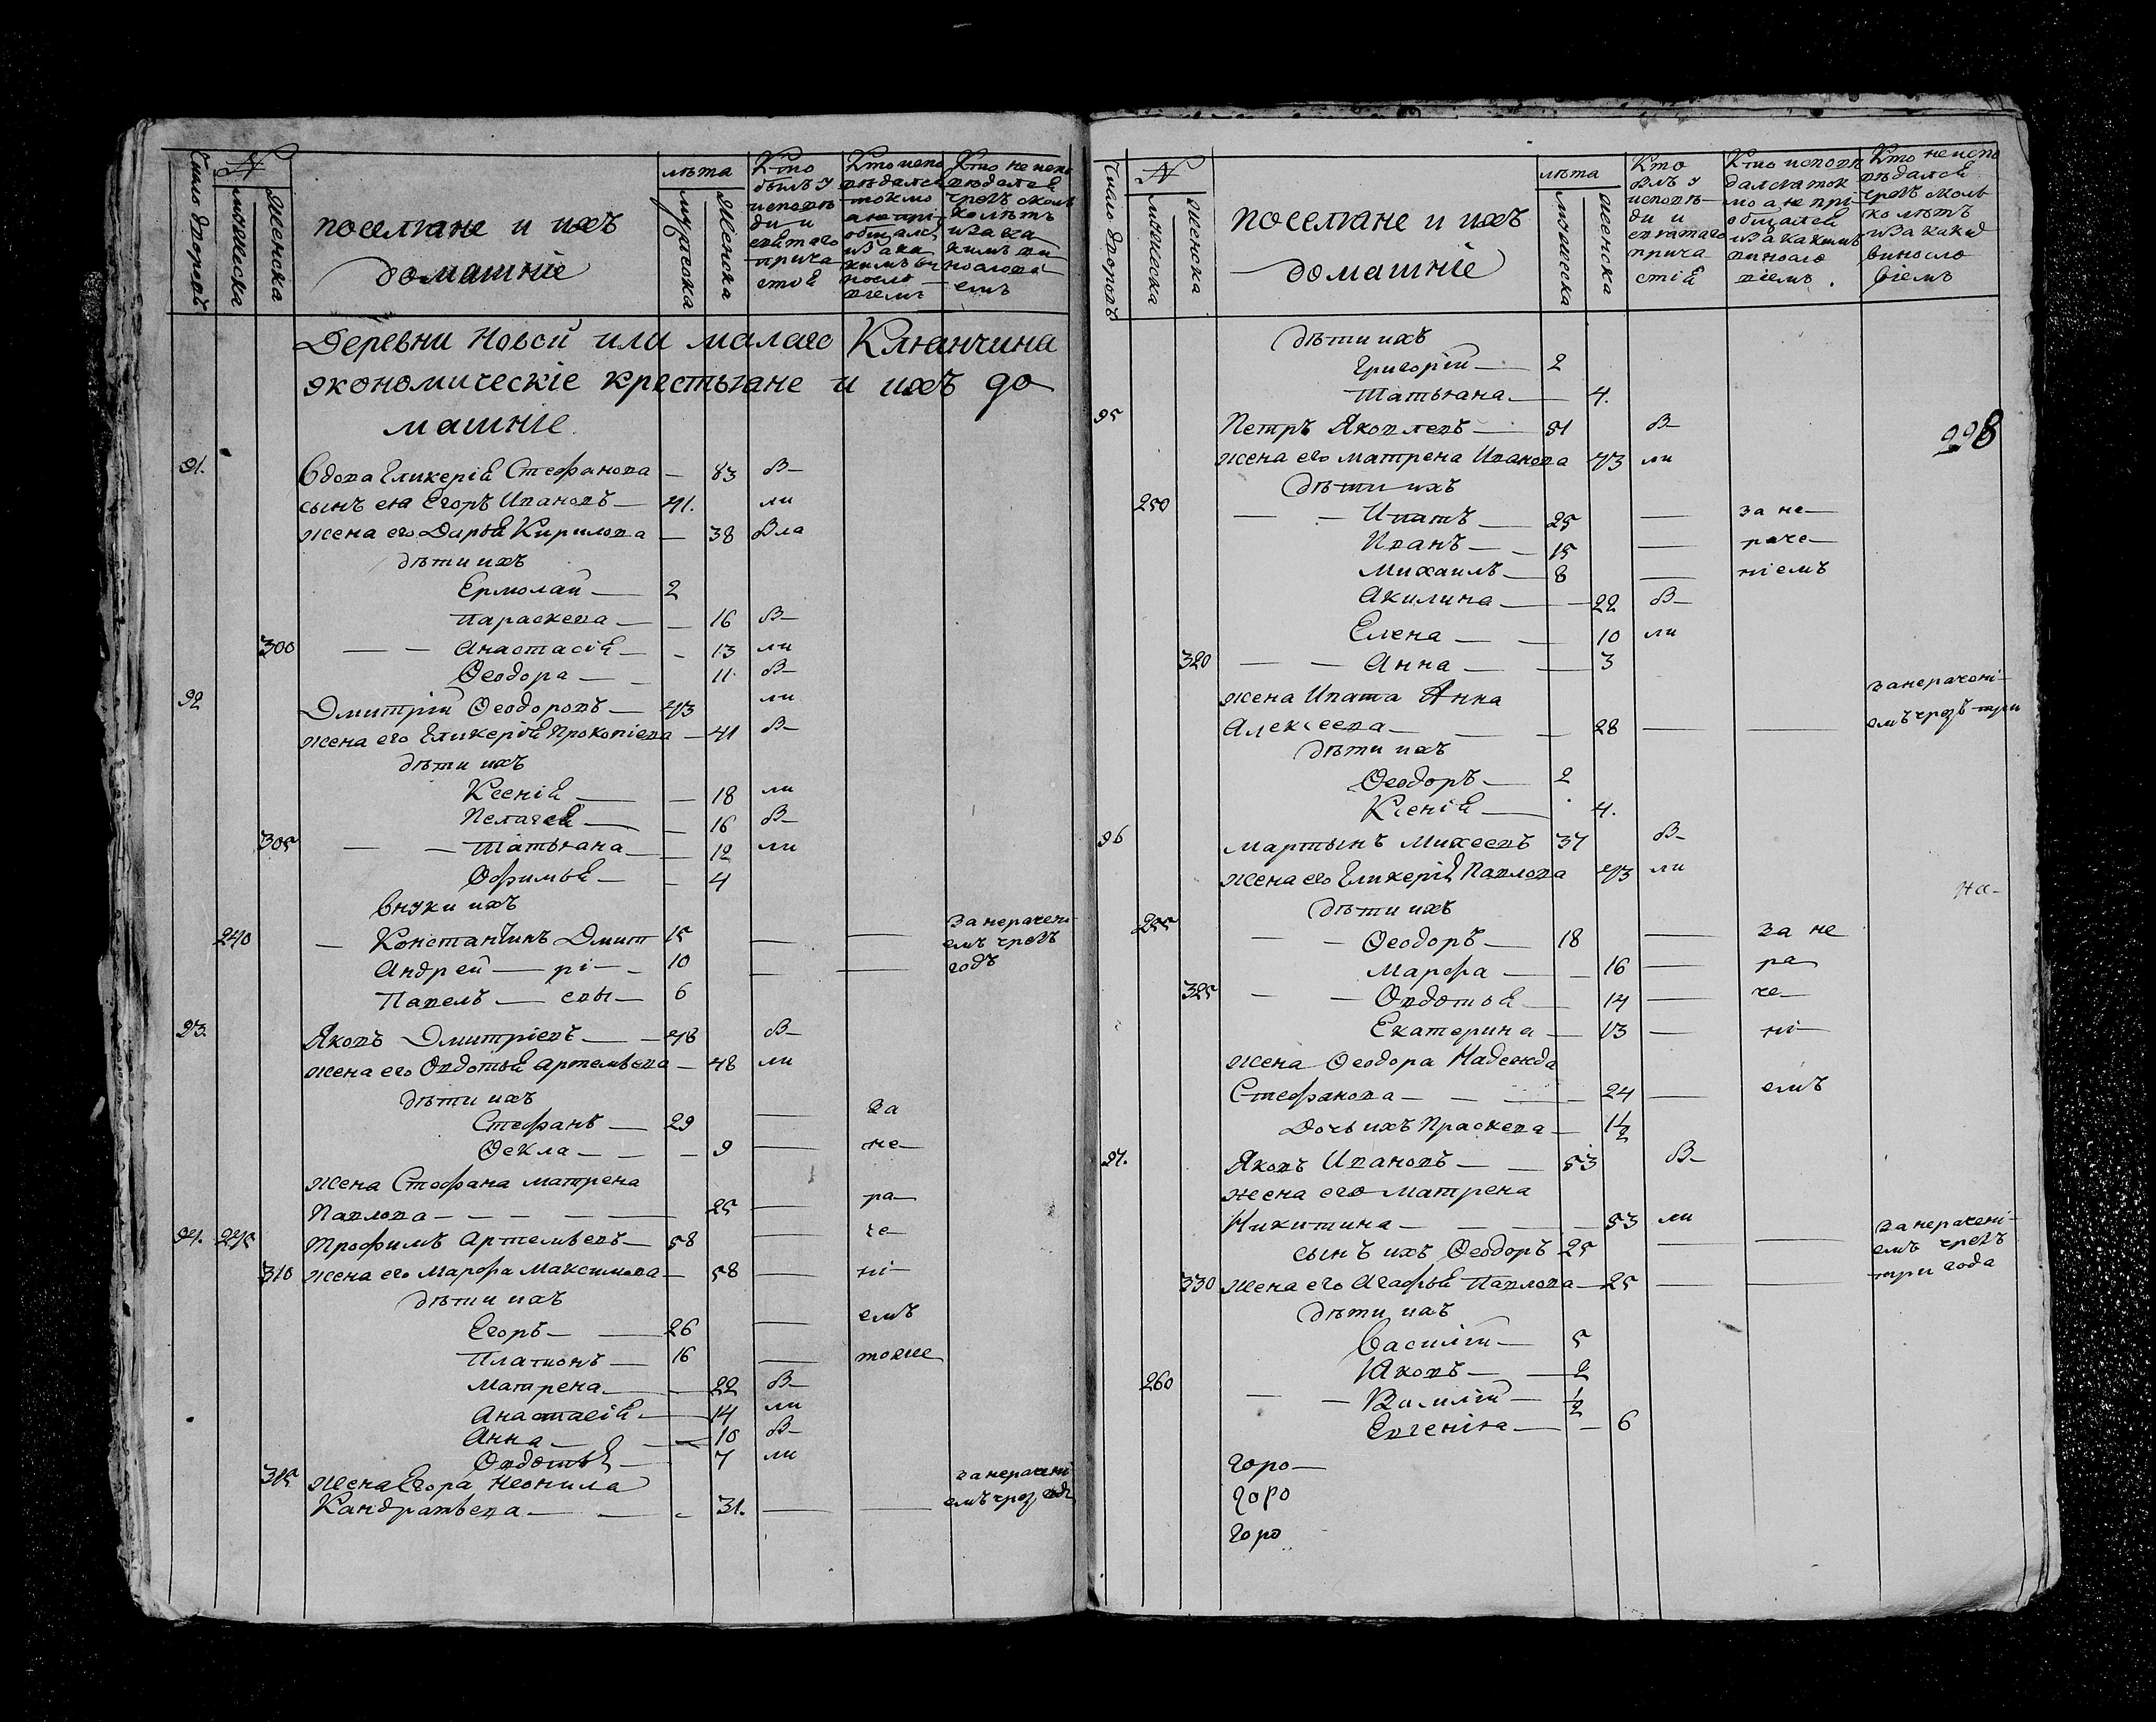 Число дворовъ
№
мужеска
женска
поселяне и ихъ
домашніе
лѣта
мужеска
женска
Кто
былъ у
исповѣ
ди и
святаго
прича
стія
Кто испо
вѣдался
токмо
а не прі
общался
и за ка
кимъ ви
носло
віемъ
Кто не испо
вѣдался
чрезъ сколь
ко лѣтъ
и за ка
кимъ ви
нослові
емъ
Деревни Новой или малаго Клянчина
экономическіе крестьяне и ихъ до
машніе
91. Вдова Гликерія Стефанова — 83 В—
сынъ ея Егоръ Ивановъ — 41. ли
жена его Дарья Кирилова — 38 Вла
дѣти ихъ
Ермолай — 2
Параскева — 16 В—
300 — — Анастасія — 13 ли
Ѳеодора — 11. В—
92 Дмитрій Ѳеодоровъ — 43 ли
жена его Гликерія Прокопіева — 41 В—
дѣти ихъ
Ксенія — 18 ли
Пелагея — 16 В—
305 — — Татьяна — 12 ли
Офимья — 4
Внуки ихъ
240 — Константинъ Дмит 15 — — за нерачені
Андрей — рі — 10 — — емъ чрезъ
Павелъ — евы — 6 годъ
93. Яковъ Дмитріевъ — 48 В—
жена его Овдотья Артемьева — 48 ли
дѣти ихъ
Стефанъ — 29 — за
Ѳекла — — 9 — не—
жена Стефана Матрена
Павлова — — — 25 — ра—
94. 245 Трофимъ Артемьевъ — 58 — че
310 жена его Марфа Максимова — 58 — ні—
дѣти ихъ
Егоръ — 26 — емъ
Платонъ — 16 — тоже
Матрена — 22 В—
Анастасія — 14 ли
Анна — 10 В—
Овдотья — 7 ли
315 жена Егора Неонила за нерачені
Кандратьева — — 31. — — емъ чрез годъ
Число дворовъ
№
мужеска
женска
поселяне и ихъ
домашніе
лѣта
мужеска
женска
Кто
былъ у
исповѣ—
ди и
святаго
прича
стія
Кто исповѣ
дался ток
мо а не прі—
общался
и за какимъ
виносло
віемъ.
Кто не испо
вѣдался
чрезъ сколь
ко лѣтъ
и за каки
виносло
віемъ
998
дѣти ихъ
Григорій — 2
Татьяна — 4.
95 Петръ Яковлевъ — 51 В—
жена его Матрена Иванова 43 ли
дѣти ихъ
250 — — Ипатъ — 25 — за не—
Иванъ — 15 — раче—
Михаилъ — 8 — ніемъ
Акилина — 22 В—
Елена — — 10 ли
320 — — Анна — — 3
жена Ипата Анна за нерачені—
Алексеева — — 28 — — емъ чрезъ три
дѣти ихъ
Ѳеодоръ — 2
Ксенія — 4.
96 Мартынъ Михеевъ 37 В—
жена его Гликерія Павлова 43 ли
на—
дѣти ихъ
255 — — Ѳеодоръ — 18 — за не
Марфа — 16 — ра
325 — — Овдотья — 14 — че—
Екатерина — 13 — ні—
жена Ѳеодора Надежда
Стефанова — — — 24 — емъ
Дочь ихъ Праскева — 1½
97. Яковъ Ивановъ — — 53 В—
жена его Матрена
Никитина — — — 53 ли
сынъ ихъ Ѳеодоръ 25 — — за нерачені—
емъ чрезъ
330 жена его Агафья Павлова — 25 — — три года
дѣти ихъ
Василій — 5
Яковъ — — 2
260 — — Василій — ½
Евгенія — — 6
Горо—
Горо
Горо